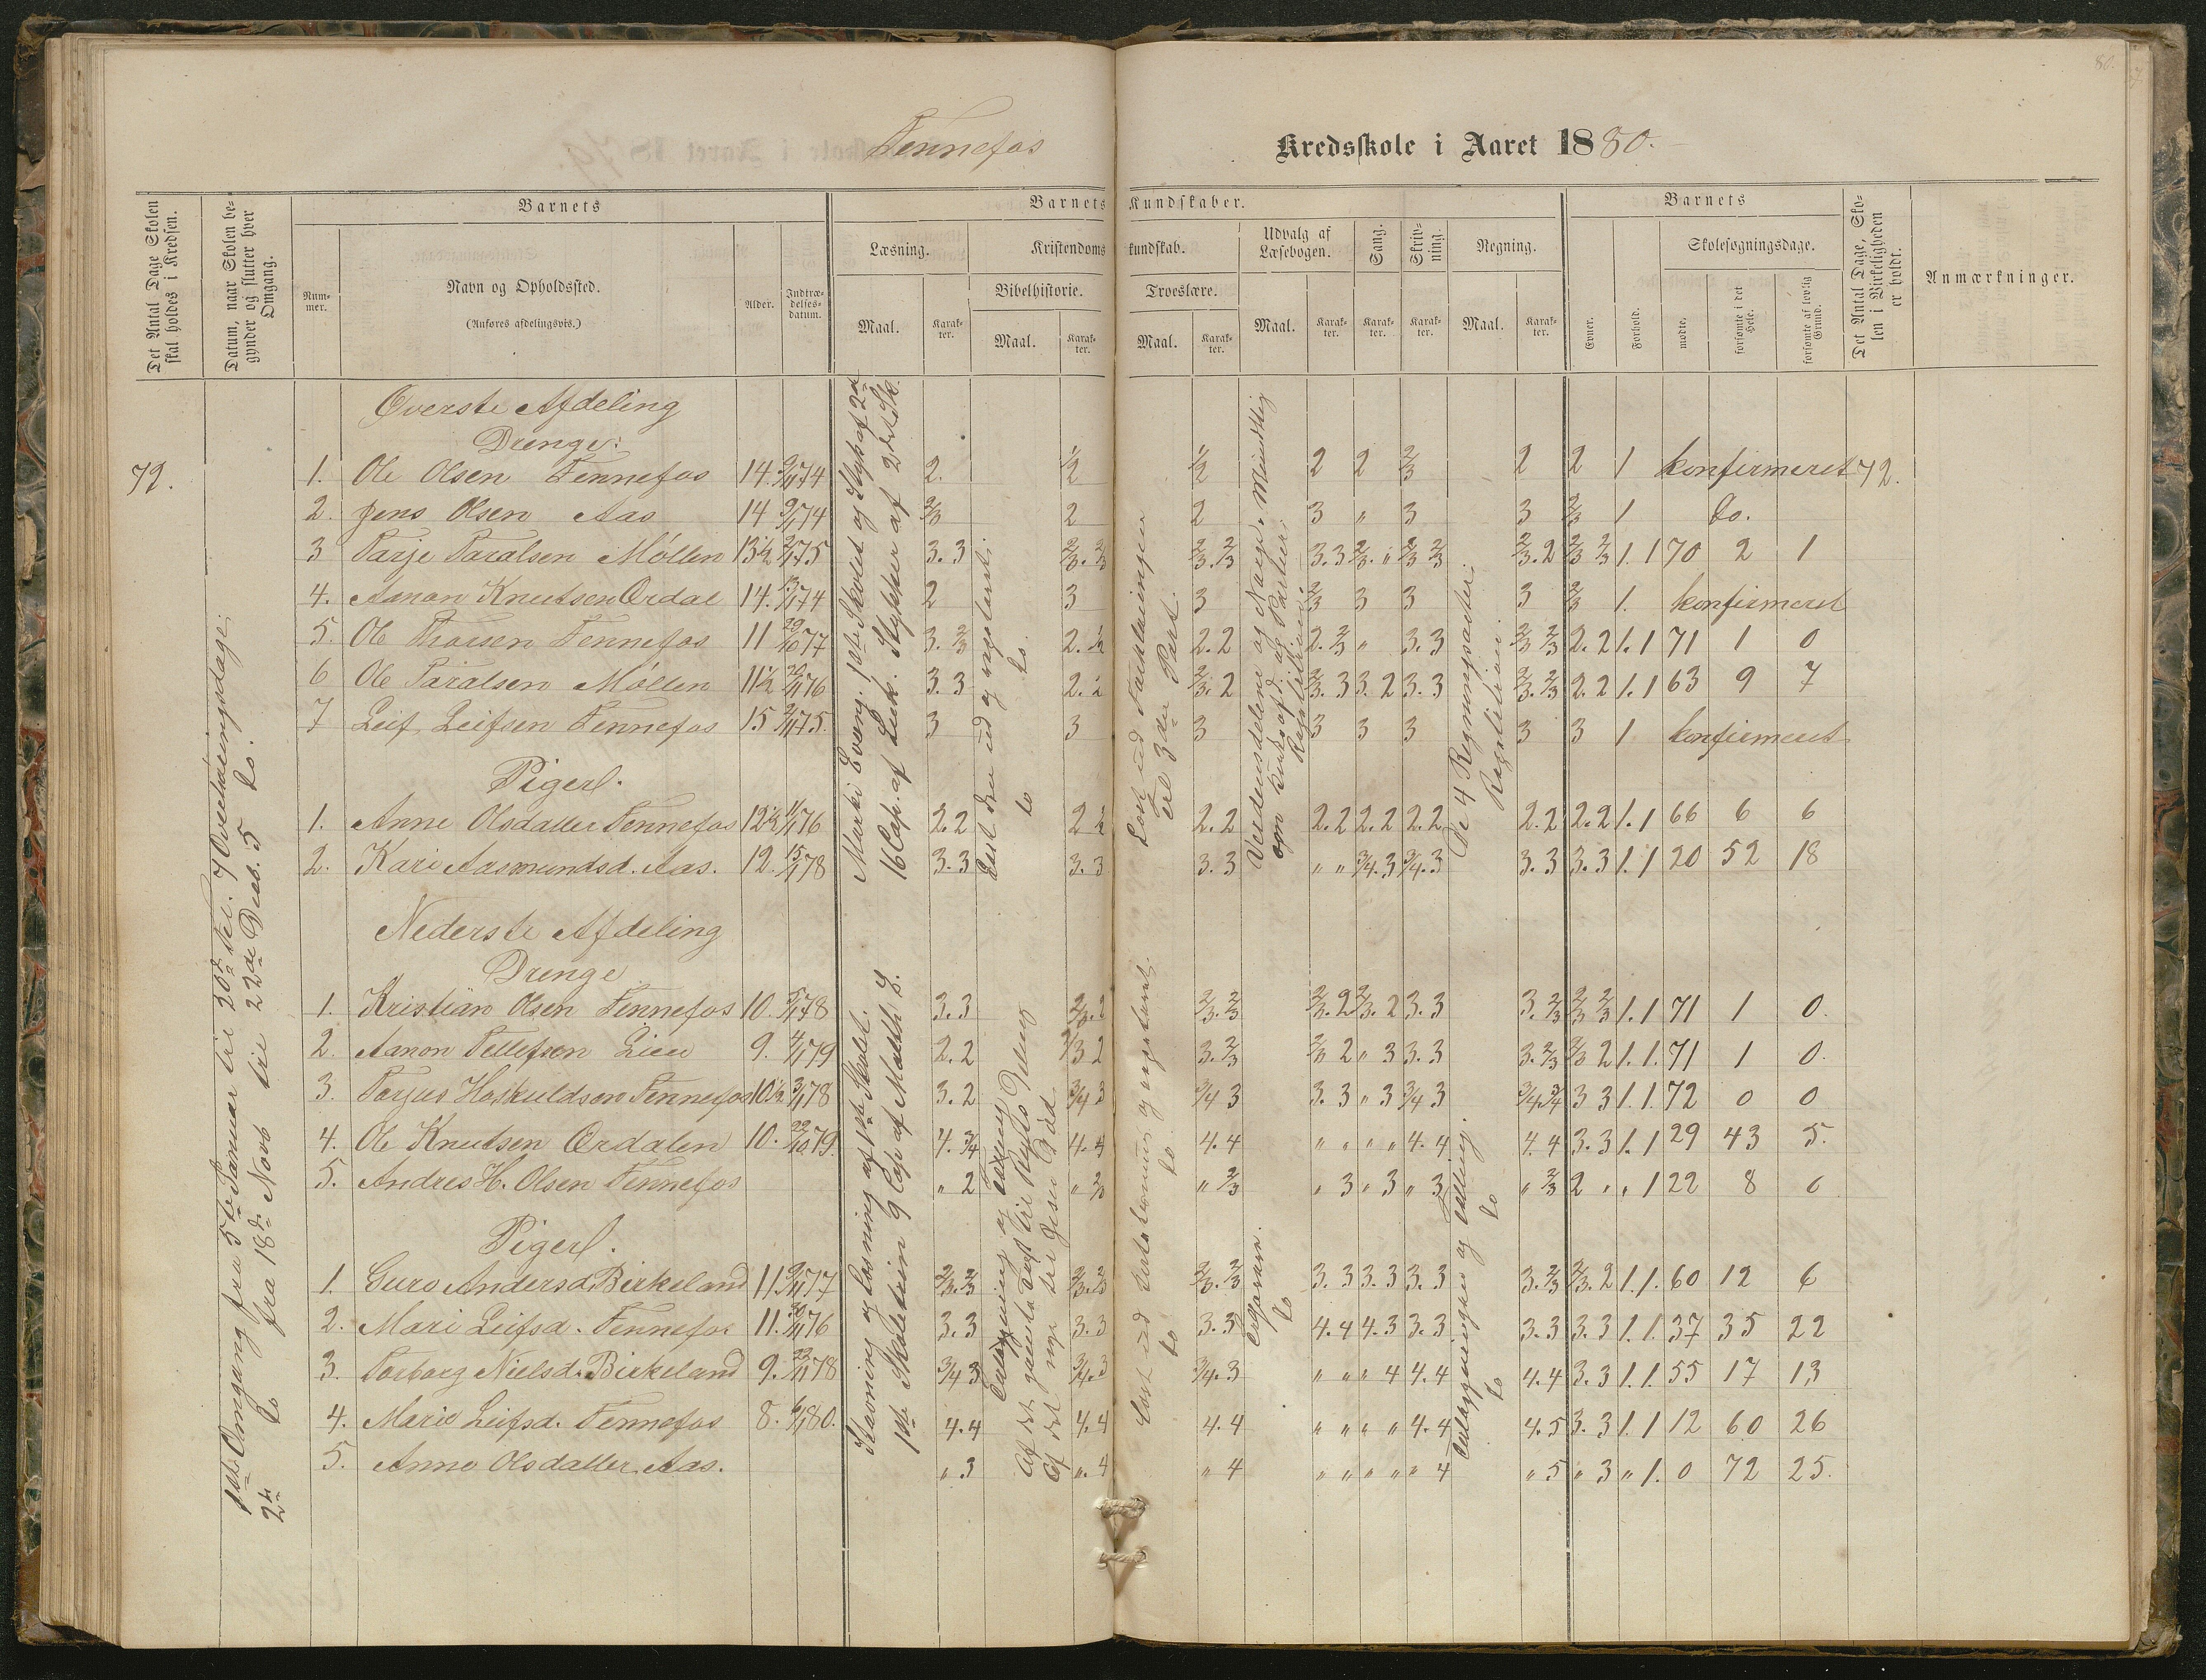 80.
Fennefos
Kredsskole i Aaret 1880.
Det Antal Dage Skolen skal holdes i Kredsen.
Datum, naar Skolen begynder og slutter hver Omgang.
Barnets
Nummer.
Navn og Opholdssted.
(Anføres afdelingsvis.)
Alder.
Indtrædelsesdatum.
Barnets Kundskaber.
Læsning.
Maal.
Karakter.
Kristendomskundskab.
Bibelhistorie.
Maal.
Karakter.
Troeslære.
Maal.
Karakter.
Udvalg af Læsebogen.
Maal.
Karakter.
Sang.
Karakter.
Skrivning.
Karakter.
Regning.
Maal.
Karakter.
Barnets
Evner.
Forhold.
Skolesøgningsdage.
mødte.
forsømte i det Hele.
forsømte af lovlig Grund.
Det Antal Dage, Skolen i Virkeligheden er holdt.
Anmærkninger.
Øverste Afdeling
Drenge:
72.
1. Ole Olsen Fennefos 14. 9/1 74 2. 1/2 1/2 2 2 2/3 2 2 1 konfirmeret 72.
2. Jens Olsen Aas 14 9/1 74 2/3 2 2 3 " 3 3 2/3 1 Do.
3 Tarje Taralsen Møllen 13 1/2 2/1 75 3. 3 2/3. 2/3 2/3. 2/3 3. 3 2/3. " 2/3 2/3 2/3. 2 2/3 2/3 1. 1 70 2 1
4. Aanon Knutsen Ordal 14. 13/1 74 2 3 3 2/3 3 3 3 2/3 1. konfirmeret
5. Ole Thorsen Fennefos 11 29/10 77 3. 2/3 2. 1/2 2. 2 2. 2/3 " 3. 3 2/3 2/3 2. 2 1. 1 71 1 0
6 Ole Taralsen Møllen 11 1/2 20/11 76 3. 3 2. 1/2 2/3. 2 2/3. 3 3. 2 3. 3 2/3. 2/3 2. 2 1. 1 63 9 7
7 Leif Leifsen Fennefos 15 2/1 75. 3 3 3 3 3 3 3 3 1 konfirmeret
Piger.
1. Anne Olsdatter Fennefos 12 1/2 11/1 76 2. 2 2 1/2 2. 2 2. 2 2. 2 2. 2 2. 2 2. 2 1. 1 66 6 6
2. Kari Aasmundsd. Aas. 12. 15/1 78 3. 3 3. 3 3. 3 " " 3/4. 3 3/4. 3 3. 3 3. 3 1. 1 20 52 18
Nederste Afdeling
Drenge
1. Kristian Olsen Fennefos 10. 5/1 78 3. 3 2/3. 2 2/3. 2/3 2/3. 2 2/3. 2 3. 3 3. 2/3 2/3 2/3 1. 1 71 1 0.
2. Aanon Tellefsen Lien 9. 4/1 79 2. 2 2/3 2 3. 2/3 2/3 2 " 3 3. 3 3. 2/3 2/3 2 1. 1. 71 1 0.
3. Torjus Hoskuldsen Fennefos 10 1/2 3/1 78 3. 2 3/4 3 3/4 3 3. 3 " 3 3/4 3 3/4. 3/4 3 3 1. 1. 72 0 0
4. Ole Knutsen Ordalen 10. 22/10 79. 4. 3/4 4. 4 4. 4 " " " " 4. 4 4. 4 3. 3 1. 1 29 43 5.
5. Andres H. Olsen Fennefos " 2 " 2/3 " 2/3 " 3 " 3 " 3 " 2/3 2 " " 1 22 8 6
Piger.
1. Guro Andersd. Birkeland 11. 9/11 77 2/3. 2/3 2/3. 2/3 2/3. 2/3 3. 3 3. 3 3. 3 3. 2/3 2/3. 2 1. 1. 60 12 6
2. Mari Leifsd. Fennefos 11. 20/11 76 3. 3 3. 3 3. 3 4. 4 4. 3 3. 3 3. 3 3. 3 1. 1. 37 35 22
3. Torborg Nielsd. Birkeland 9. 22/11 78 3/4 3 3/4. 3 3/4. 3 " " " 4 4. 4 4. 4 3. 3 1. 1. 55 17 13
4. Marie Leifsd. Fennefos 8. 6/1 80. 4. 4 4. 4 4. 4 " " " " 4. 4 4. 5 3. 3 1. 1 12 60 26
5. Anne Olsdatter Aas. " 3 " 4 " 4 " " " " " 4 " 5 " 3 " 1. 0 72 25.
1ste Omgang fra 5te Januar til 20de Feb. 7 Overhøringsdage;
2de Do fra 18de Novb til 22de Decb. 5 Do.
16 Cap. af Luk. Stykker af 2det Sk.
Læst den ud og repeteret;
Do Do
Læst ud Forklaringen
til 3die Part.
Verdensdelene og Norge. Mundtlig
Repetition.
De 4 Regningsarter;
Repetition.
Stavning og Læsning af 1ste Skolet.
1ste Skoletrin 9 Cap af Matth. L.
Læst ud
Do Do